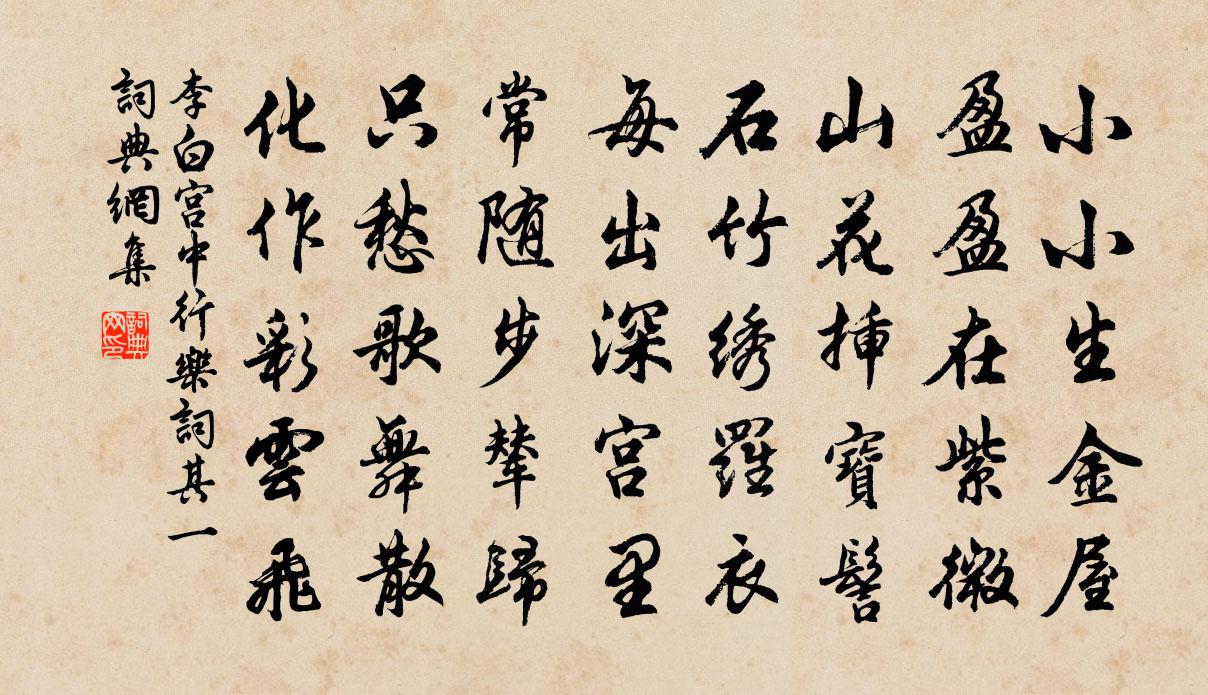 小小生金屋
盈盈在紫微
山花插寶髻
石竹绣羅衣
每出深宫里
常随步輦歸
只愁歌舞散
化作彩雲飛
李白宫中行樂詞其一
詞典網集
詞典网印